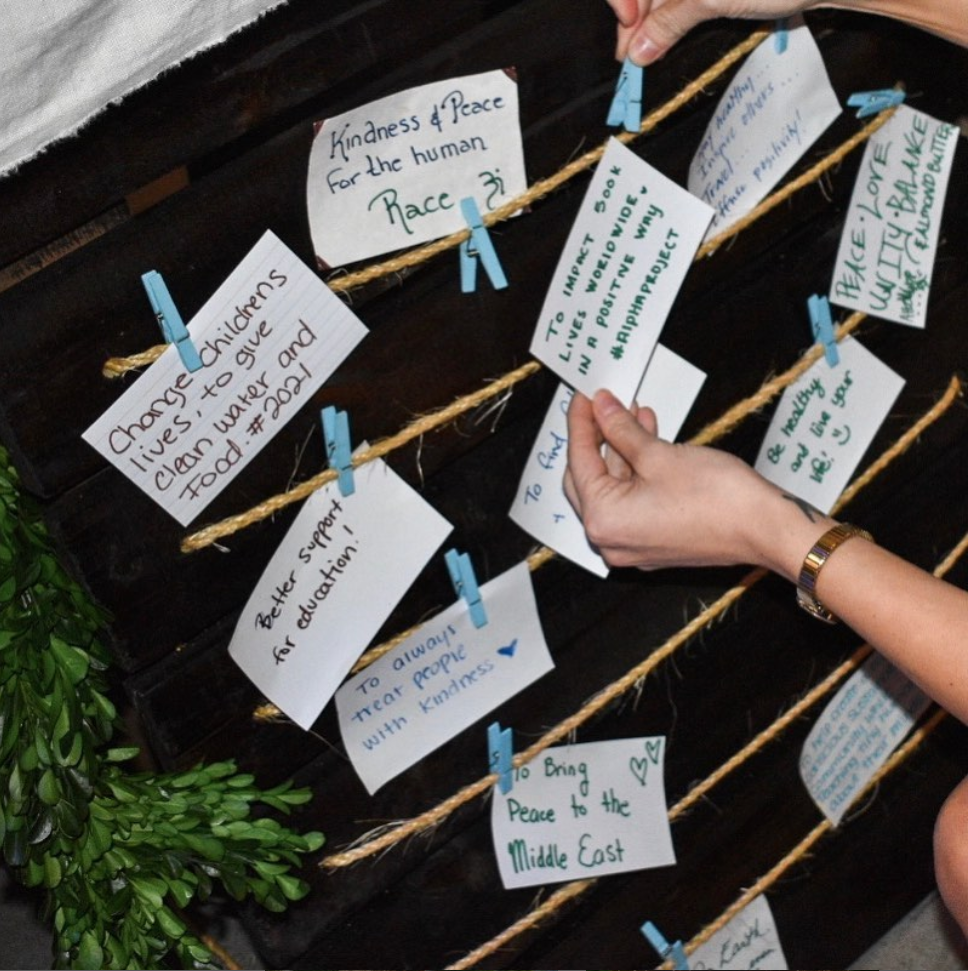 Kindness & Peace
for the human
Race
Inspire others...
Travel...
positivity!
PEACE · LOVE
UNITY · BALANCE
& ALMOND BUTTER
TO IMPACT 500K
LIVES WORLDWIDE
IN A POSITIVE WAY
#AlpHAPROJECT
Change childrens
lives, to give
clean water and
Food. #2021
Be healthy
and live your
life!
To find
Better support
for education!
To always
treat people
with kindness
To Bring
Peace to the
Middle East
Earth